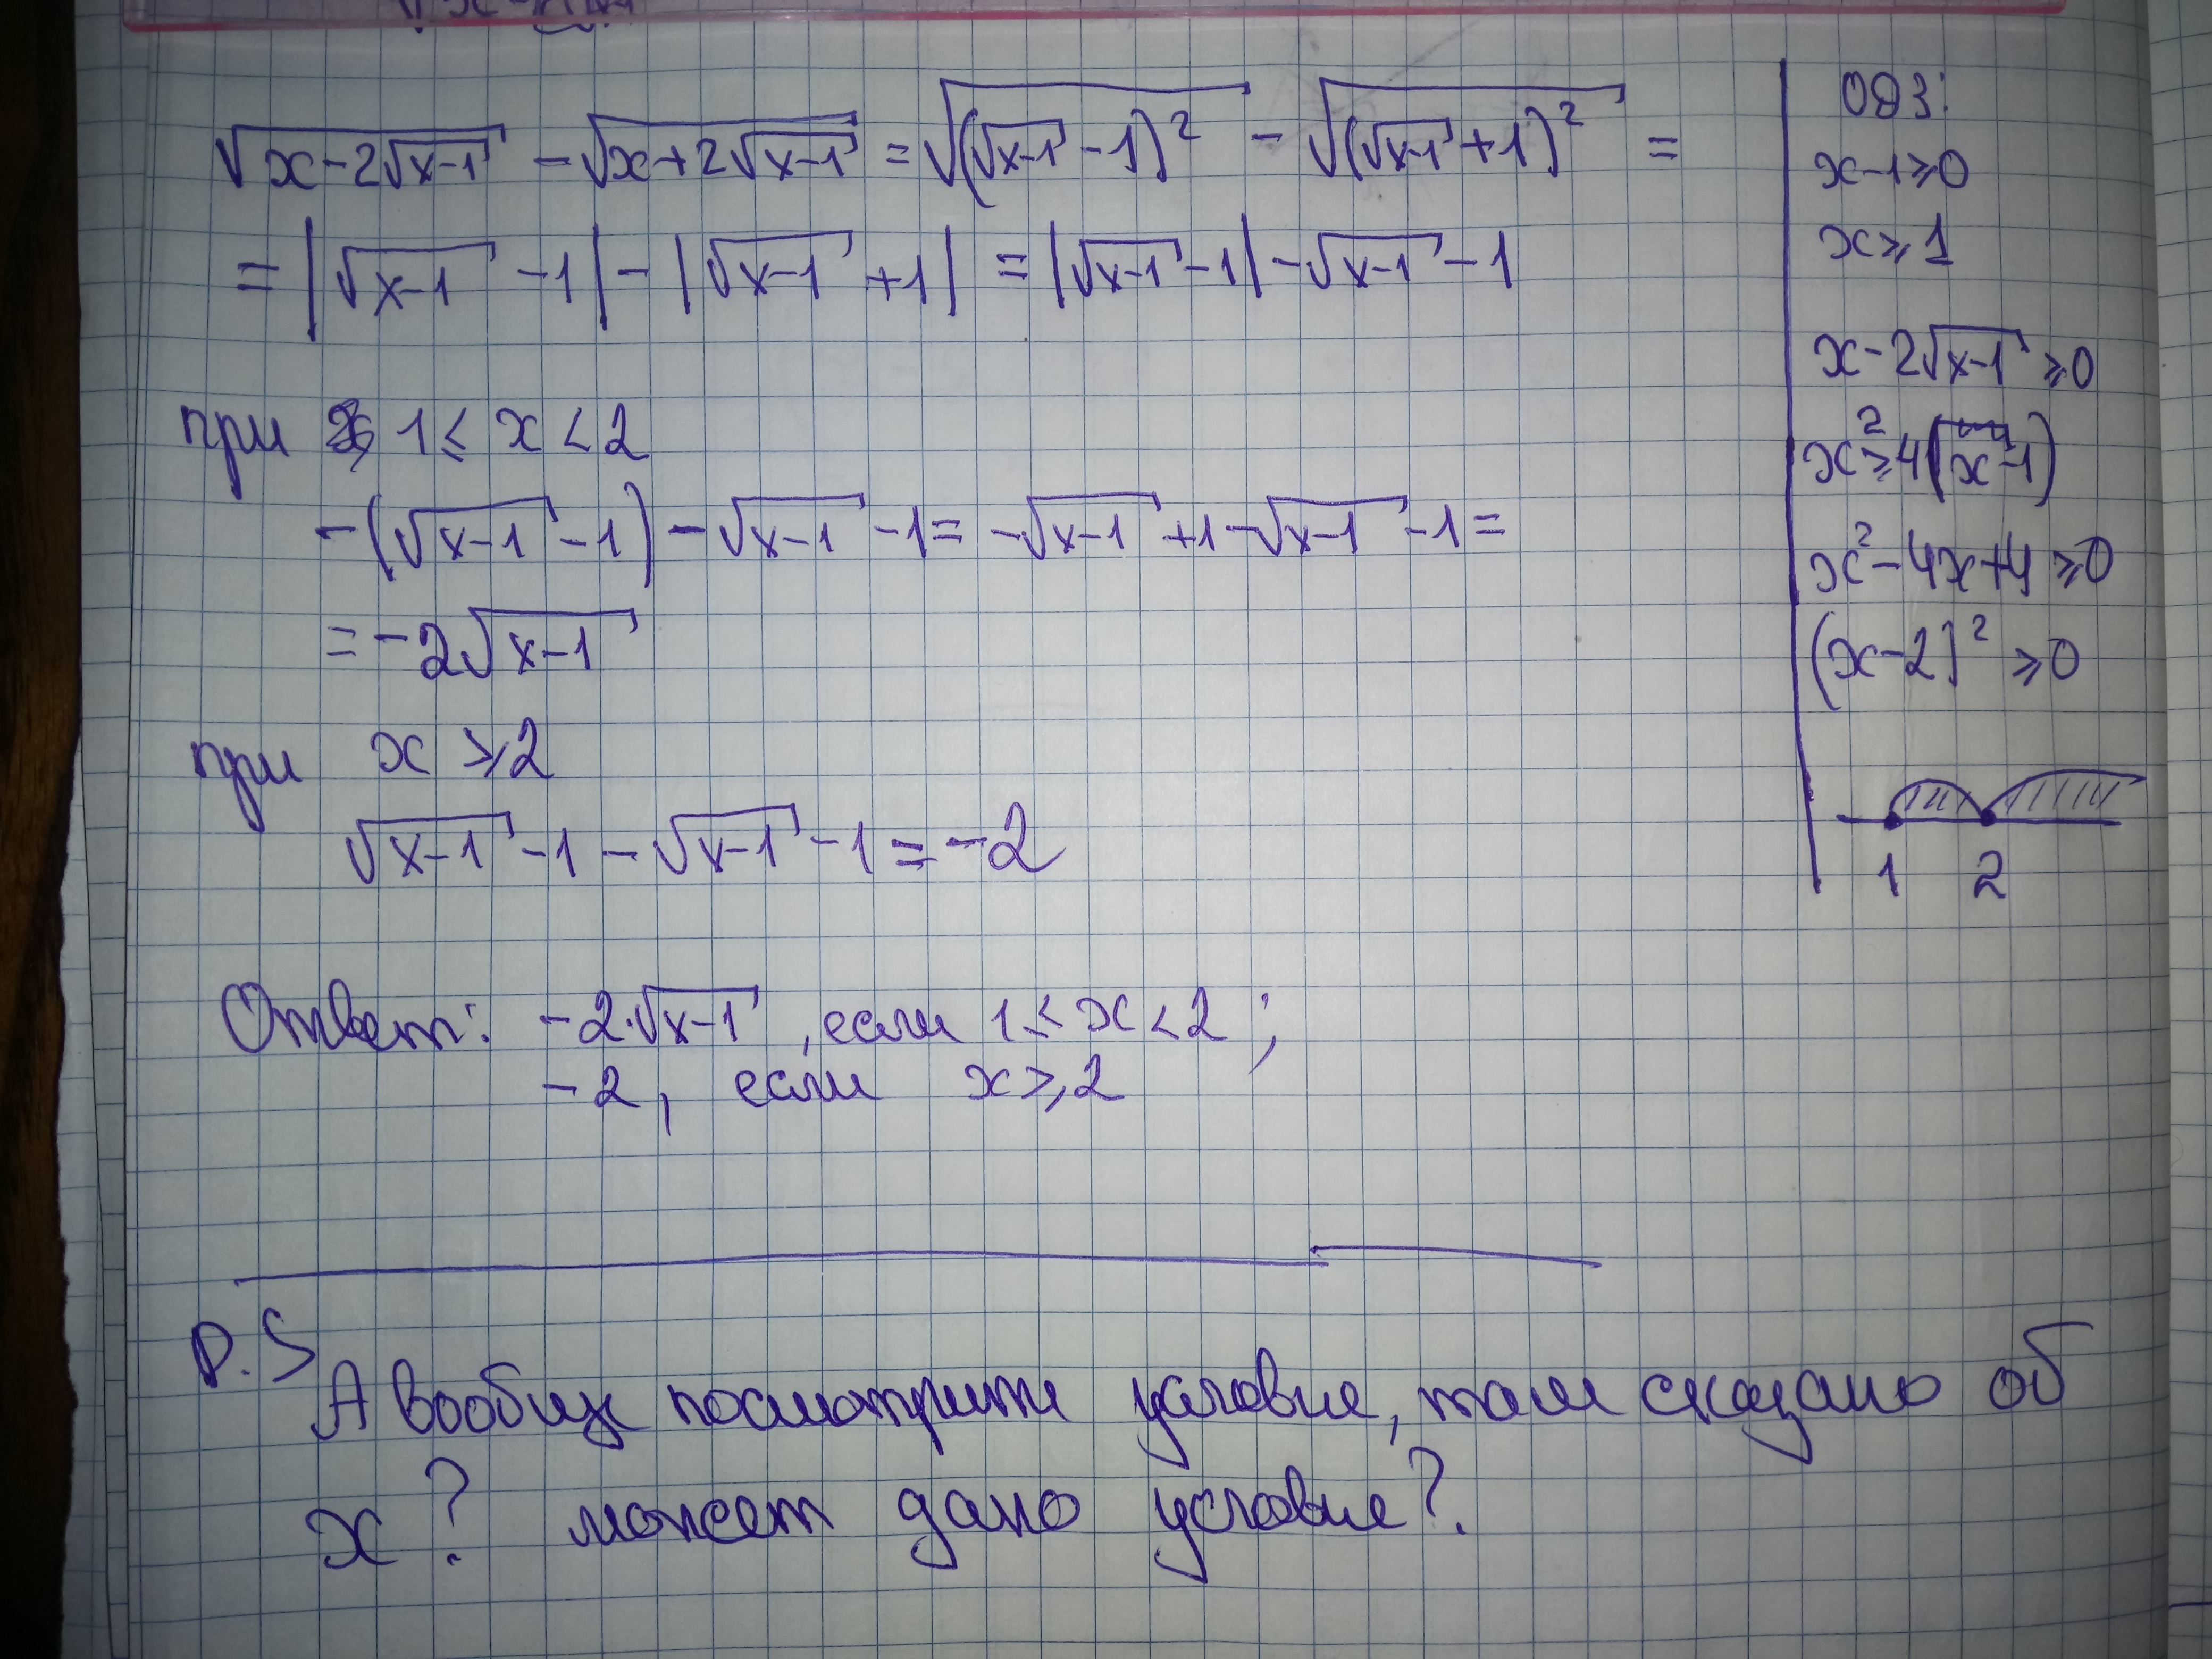 √(x-2√(x-1)) - √(x+2√(x-1)) = √((√(x-1) -1)²) - √((√(x-1) +1)²) =
= |√(x-1) -1| - |√(x-1) +1| = |√(x-1) -1| - √(x-1) -1
при 1 ≤ x < 2
-(√(x-1) -1) - √(x-1) -1 = -√(x-1) +1 -√(x-1) -1 =
= -2√(x-1)
при x ≥ 2
√(x-1) -1 - √(x-1) -1 = -2
Ответ: -2·√(x-1), если 1 ≤ x < 2;
-2, если x ≥ 2
ОДЗ:
x-1≥0
x≥1
x-2√(x-1) ≥0
x²≥4(x-1)
x²-4x+4≥0
(x-2)²≥0
1 2
P.S
А вообще посмотрите условие, там сказано об
x? может дано условие?.